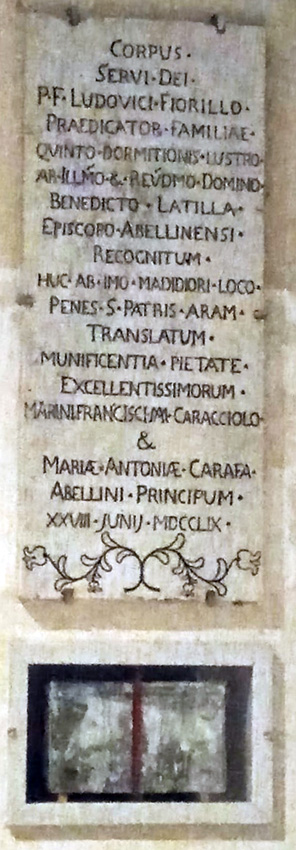 CORPUS·
SERVI·DEI·
P·F·LUDOVICI·FIORILLO·
PRAEDICATOR·FAMILIAE·
QUINTO·DORMITIONIS·LUSTRO·
AB·ILLMO·&·REVDMO·DOMINO·
BENEDICTO·LATILLA·
EPISCOPO·ABELLINENSI·
RECOGNITUM·
HUC·AB·IMO·MADIDIORI·LOCO·
PENES·S·PATRIS·ARAM·
TRANSLATUM·
MUNIFICENTIA·PIETATE·
EXCELLENTISSIMORUM·
MARINI·FRANCISCI·CARACCIOLO·
&
MARIÆ·ANTONIÆ·CARAFA·
ABELLINI·PRINCIPUM·
XXVIII·JUNIJ·MDCCLIX·